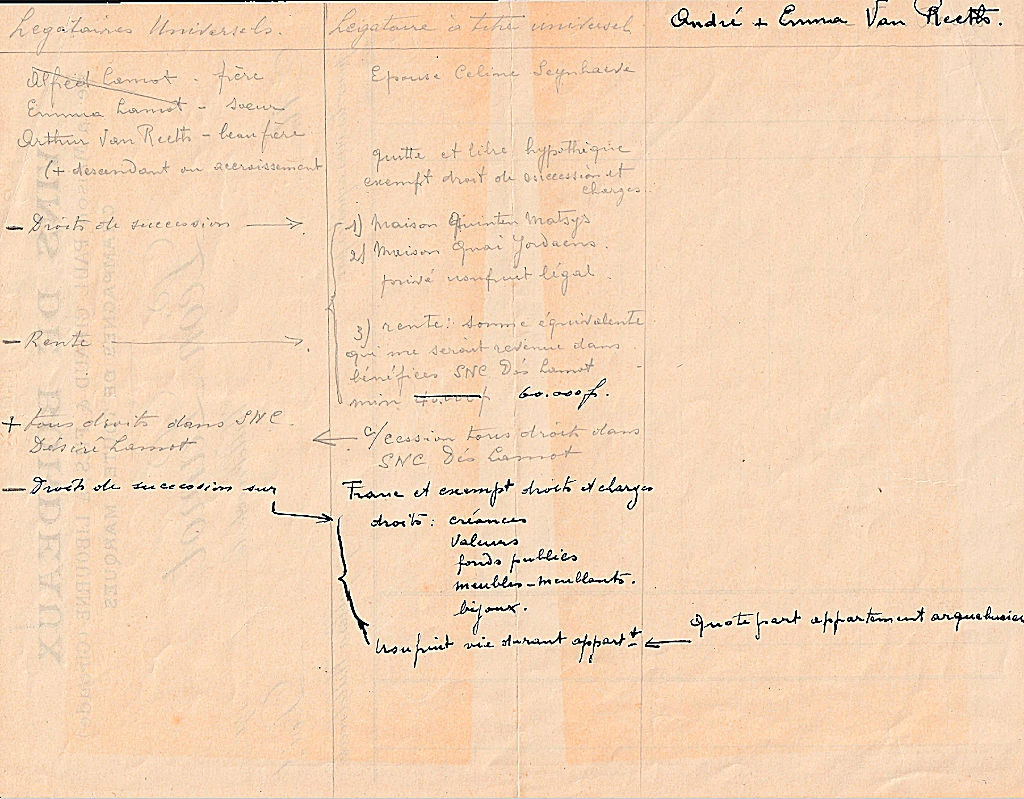 Légataires Universels.
Alfred Lamot - frère
Emma Lamot - soeur
Arthur Van Reeth - beau frère
(+ descendant ou accroissement
- Droits de succession →
- Rente →
+ tous droits dans SNC
Désiré Lamot
- Droits de succession sur
Légataire à titre universel
Epouse Celine Seynhaeve
quitte et libre hypothèque
exempt droit de succession et
charges
1) Maison Quinten Matsys
2) Maison Quai Jordaens.
privé usufruit légal.
3) rente: somme équivalente
qui me serait revenue dans
bénéfices SNC Dés Lamot
min 60.000 f.
← c/cession tous droits dans
SNC Dés Lamot
Franc et exempt droits et charges
droits: créances
valeurs
fonds publics
meubles-meublants.
bijoux.
Usufruit vie durant appart t
André + Emma Van Reeth.
← Quote part appartement
VINS DE BORDEAUX